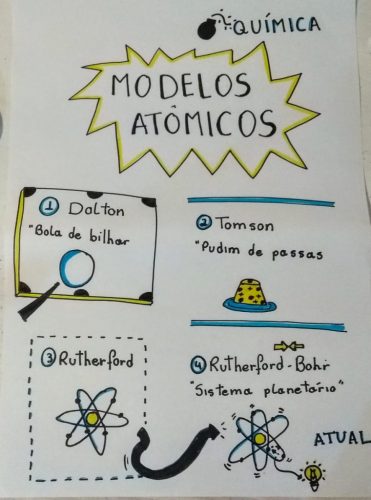 QUÍMICA
MODELOS
ATÔMICOS
1 Dalton
"Bola de bilhar
2 Tomson
"Pudim de passas
3 Rutherford
4 Rutherford-Bohr
"Sistema planetário"
ATUAL